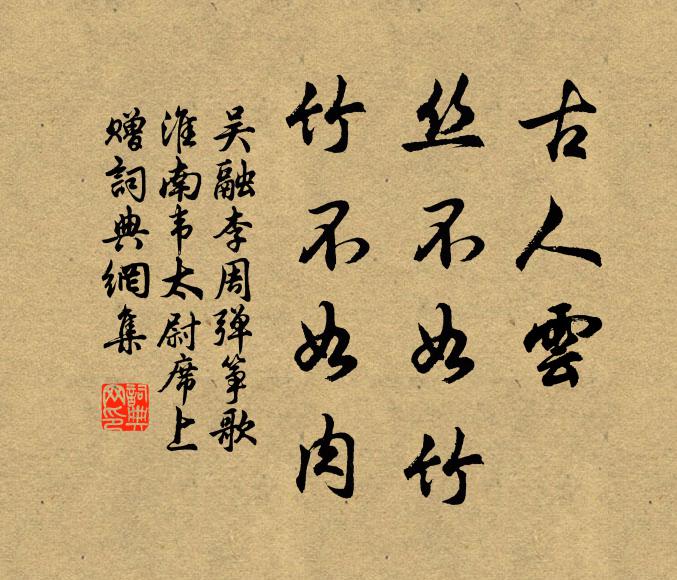 古人雲
丝不如竹
竹不如肉
吴融李周弹筝歌
淮南韦太尉席上
赠詞典網集
詞典
网印